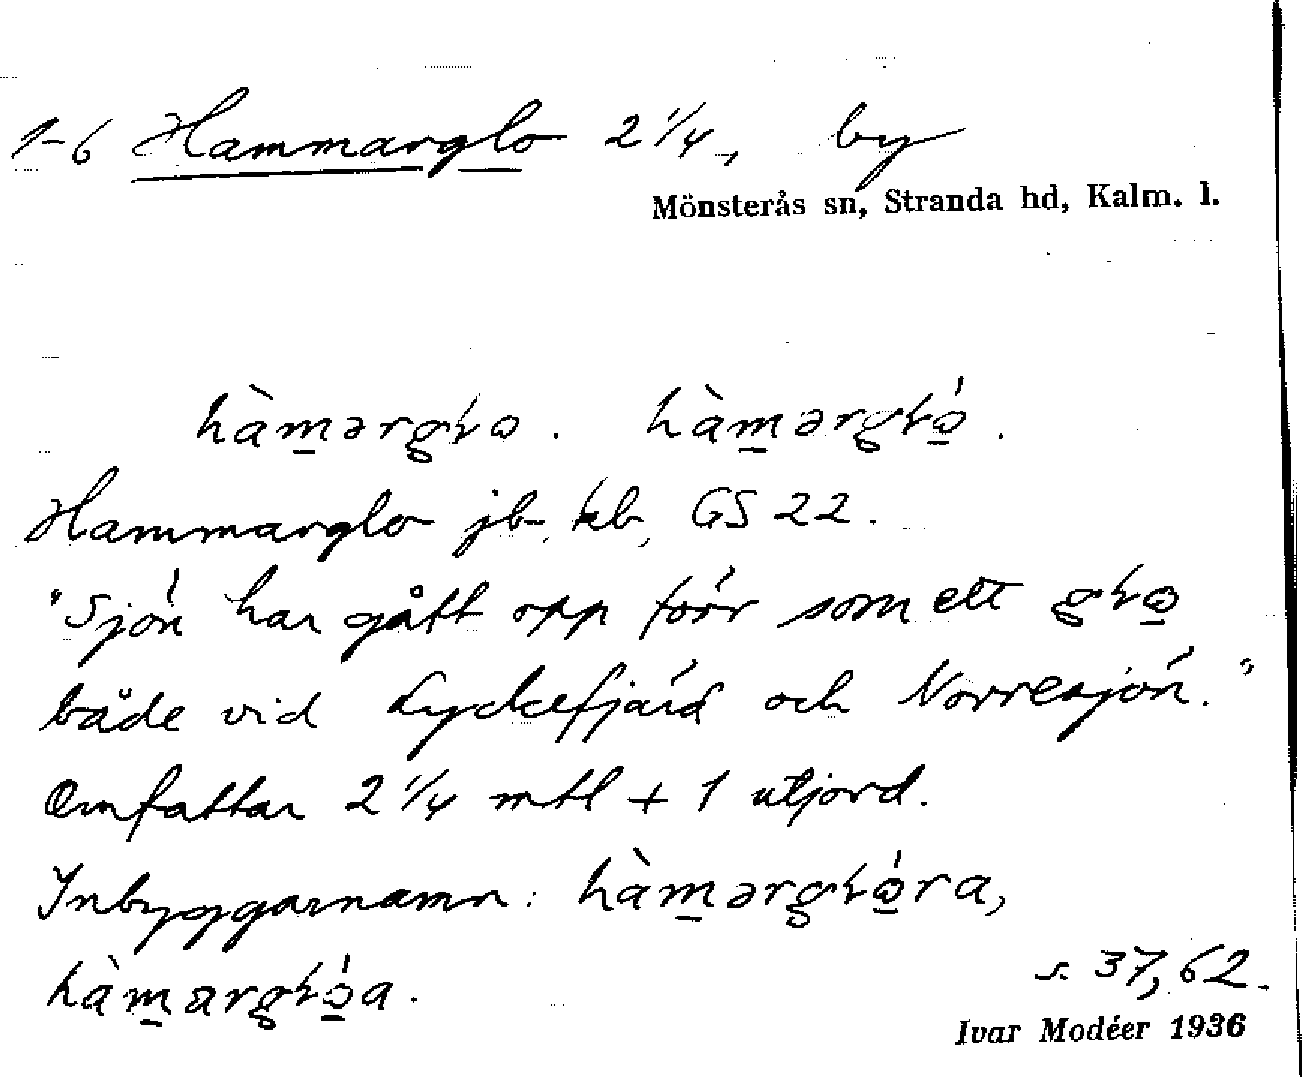 1-6 Hammarglo 2 1/4, by
Mönsterås sn, Stranda hd, Kalm. l.
hàm̲ərgɫo. hàm̲ərgɫó̲.
Hammarglo jb, kb, GS 22.
"Sjön har gått opp förr som ett gɫo̲
både vid Lyckefjärd och Norresjön."
Omfattar 2 1/4 mtl + 1 utjord.
Inbyggarnamn: hàm̲ərgɫó̲ra,
hàm̲argɫó̲a.
s. 37, 62.
Ivar Modéer 1936